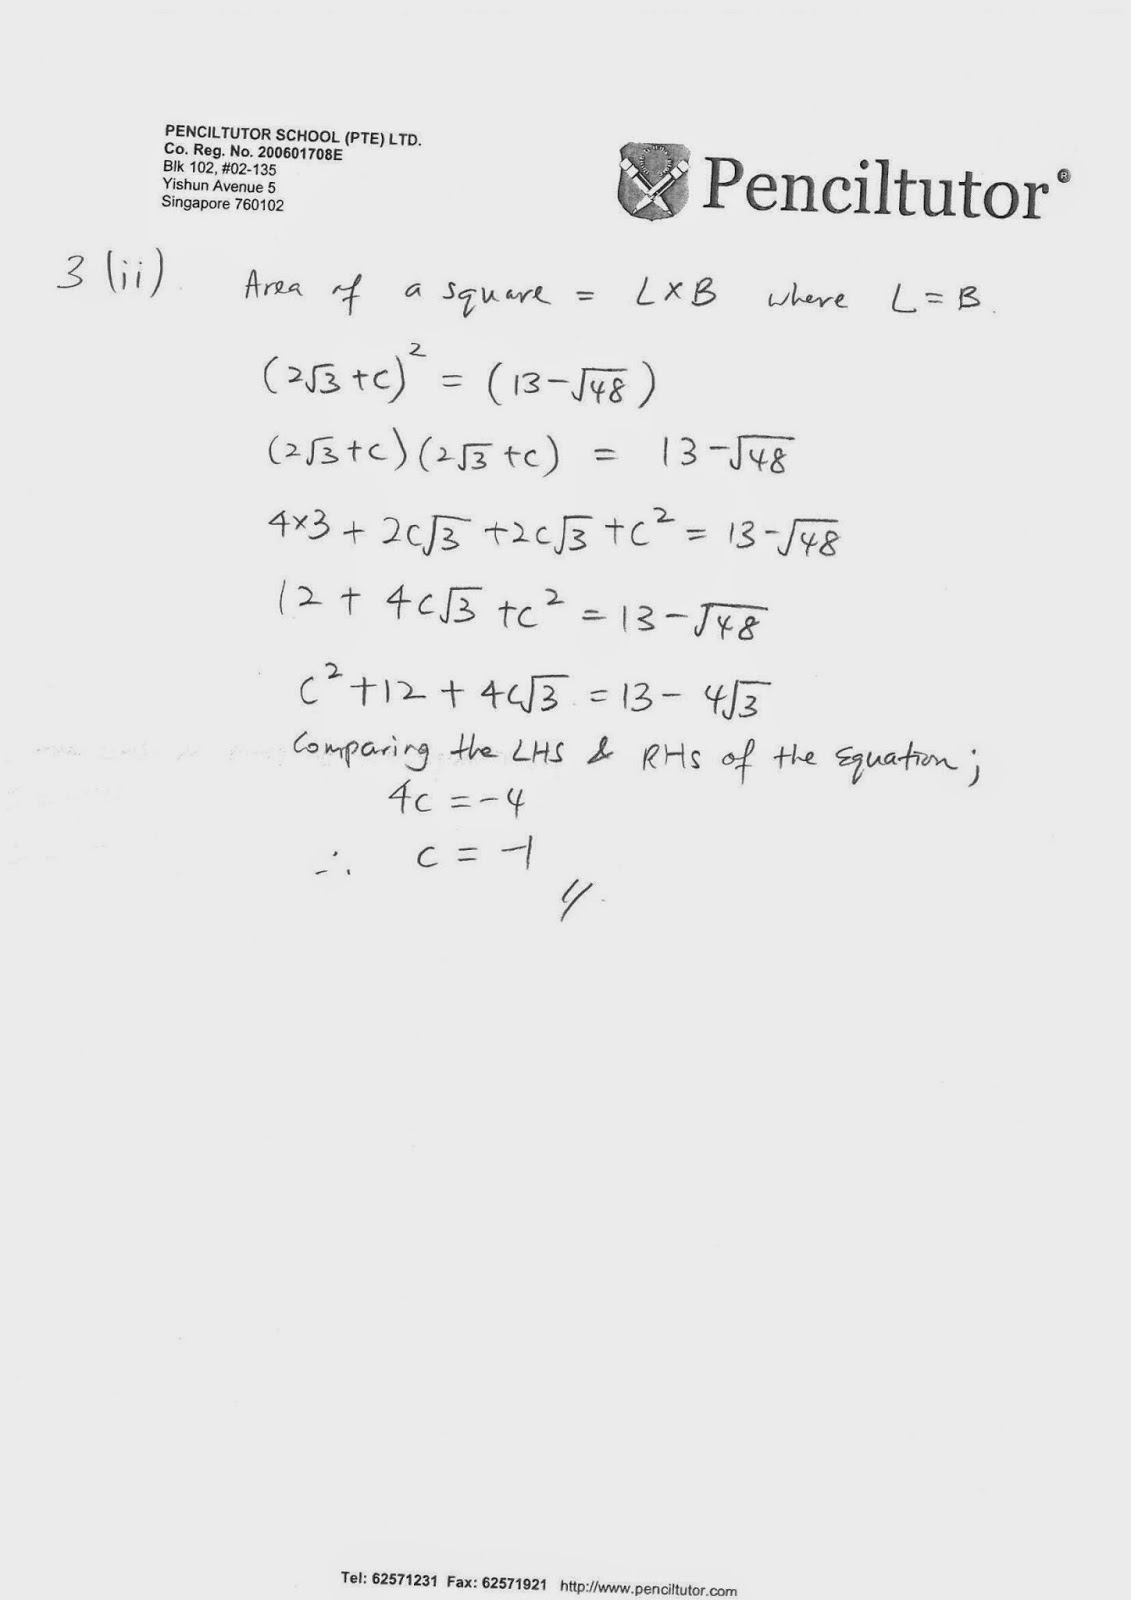 PENCILTUTOR SCHOOL (PTE) LTD.
Co. Reg. No. 200601708E
Blk 102, #02-135
Yishun Avenue 5
Singapore 760102
Penciltutor®
3 (ii). Area of a square = L×B where L = B.
(2√3 + c)² = (13 - √48)
(2√3 + c)(2√3 + c) = 13 - √48
4×3 + 2c√3 + 2c√3 + c² = 13 - √48
12 + 4c√3 + c² = 13 - √48
c² + 12 + 4c√3 = 13 - 4√3
Comparing the LHS & RHS of the Equation;
4c = -4
∴ c = -1
Tel: 62571231 Fax: 62571921 http://www.penciltutor.com